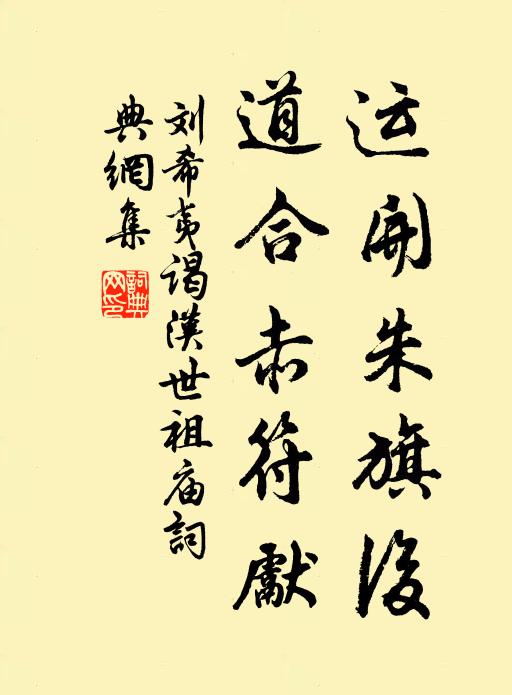 运开朱旗後
道合赤符獻
刘希夷谒漢世祖庙詞
典網集
詞典网印